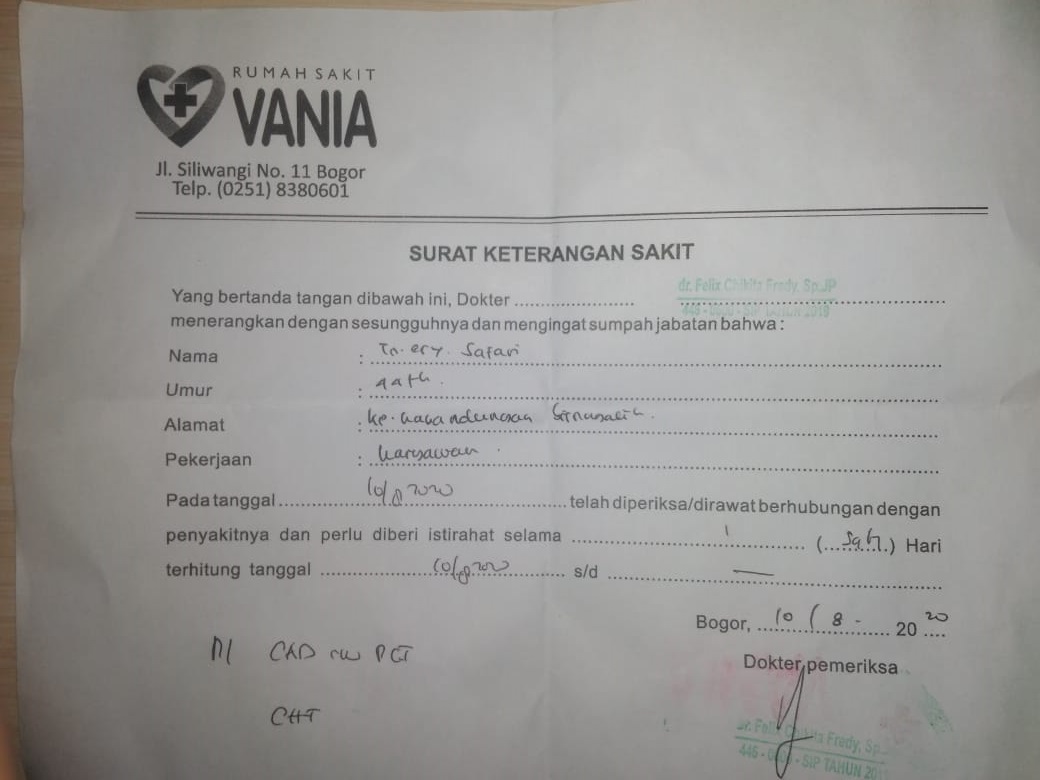 RUMAH SAKIT
VANIA
Jl. Siliwangi No. 11 Bogor
Telp. (0251) 8380601
SURAT KETERANGAN SAKIT
Yang bertanda tangan dibawah ini, Dokter .................... dr. Felix Chikita Fredy, Sp.JP
SIP TAHUN 2019
menerangkan dengan sesungguhnya dan mengingat sumpah jabatan bahwa :
Nama : Tn. ery. Safari
Umur :
Alamat :
Pekerjaan : karyawan
Pada tanggal 10/8 2020 telah diperiksa/dirawat berhubungan dengan
penyakitnya dan perlu diberi istirahat selama 1 (Satu) Hari
terhitung tanggal 10/8 2020 s/d —
Bogor, 10 / 8 - 20 20
Dokter pemeriksa
CAD PCI
dr. Felix Chikita Fredy, Sp.
SIP TAHUN